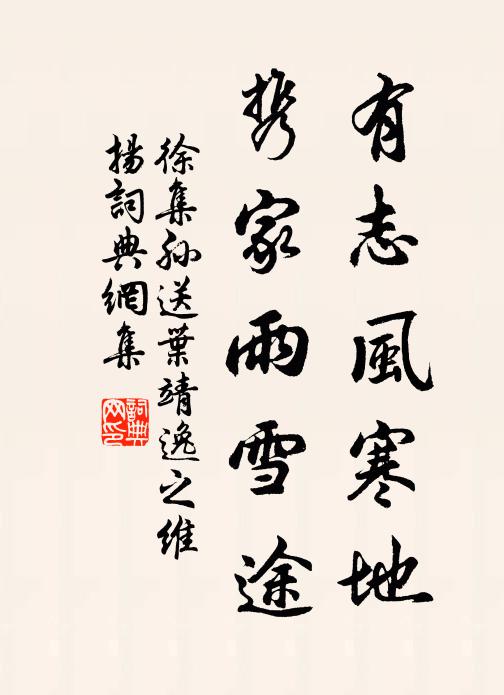 有志風寒地
携家雨雪途
徐集孙送葉靖逸之維
揚詞典網集
詞典
网印